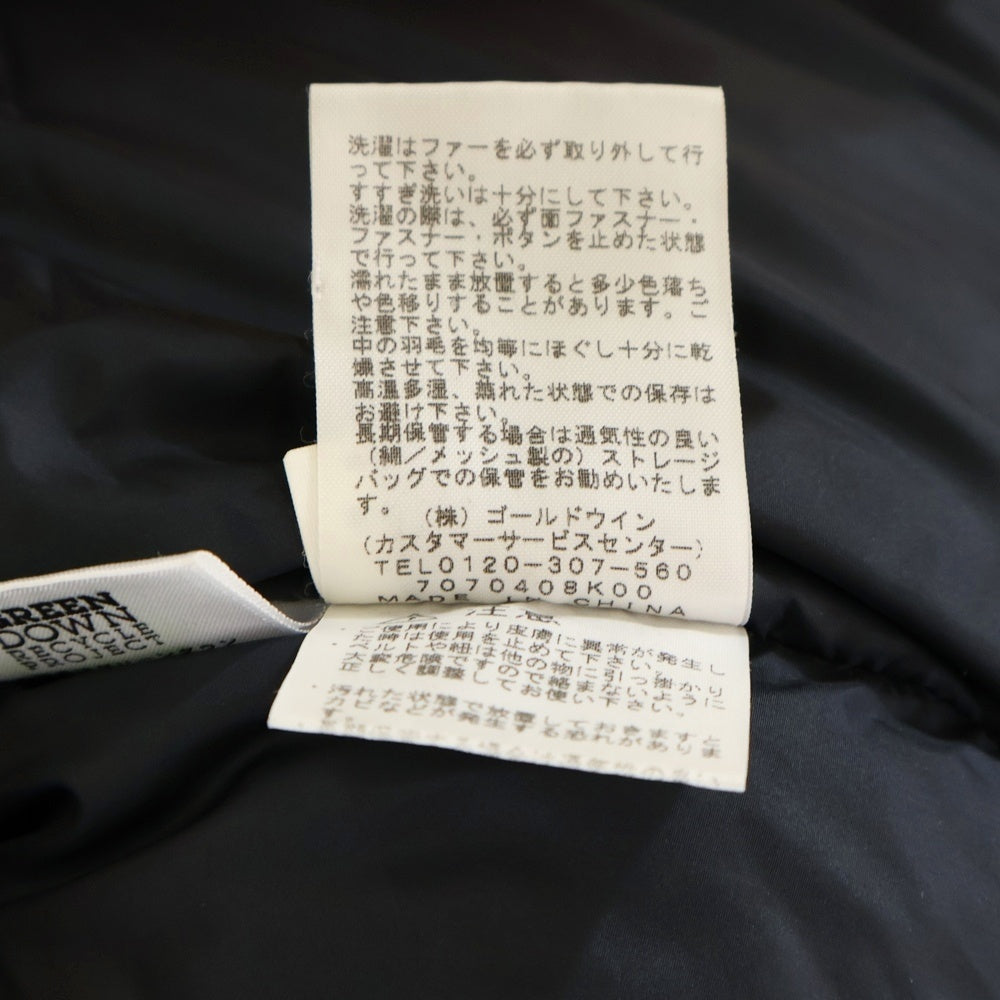 洗濯はファーを必ず取り外して行
って下さい。
すすぎ洗いは十分にして下さい。
洗濯の際は、必ず面ファスナー・
ファスナー・ボタンを止めた状態
で行って下さい。
濡れたまま放置すると多少色落ち
や色移りすることがあります。ご
注意下さい。
中の羽毛を均等にほぐし十分に乾
燥させて下さい。
高温多湿、蒸れた状態での保存は
お避け下さい。
長期保管する場合は通気性の良い
(綿/メッシュ製の)ストレージ
バッグでの保管をお勧めいたしま
す。
(株)ゴールドウイン
(カスタマーサービスセンター)
TEL0120-307-560
7070408K00
MADE IN CHINA
GREEN
DOWN
RECYCLE
PROJECT
注意
・ご使用により皮膚に異常が発生し
た時は使用を止めて下さい。
ベルトや紐は他の物に引っ掛かり
大変危険ですので絡まないように
正しく調整してお使い下さい。
・汚れた状態で放置しておきますと
カビなどが発生する恐れがありま
す。